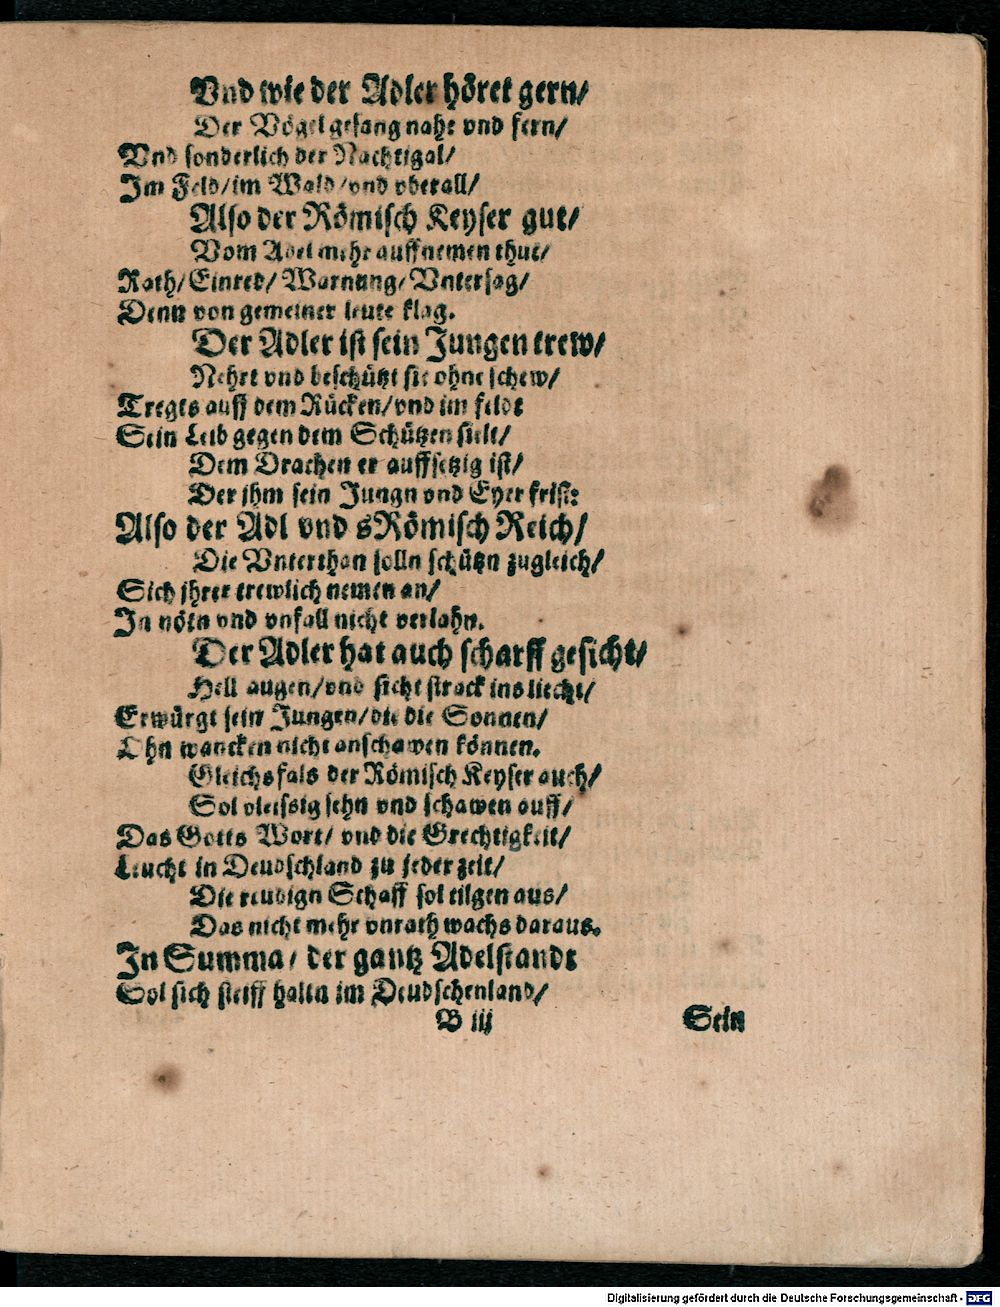 Vnd wie der Adler höret gern/
Der Vögel gesang nahe vnd fern/
Vnd sonderlich der Nachtigal/
Im Feld/im Wald/vnd vberall/
Also der Römisch Keyser gut/
Vom Adel mehr auffnemen thut/
Rath/Einred/Warnung/Vntersag/
Denn von gemeiner leute klag.
Der Adler ist sein Jungen trew/
Nehrt vnd beschützt sie ohne schew/
Tregts auff dem Rücken/vnd im feldt
Sein Leib gegen dem Schützen stelt/
Dem Drachen er auffsetzig ist/
Der jhm sein Jungn vnd Eyer frist:
Also der Adl vnd sRömisch Reich/
Die Vnterthan solln schützn zugleich/
Sich jhrer trewlich nemen an/
In nötn vnd vnfall nicht verlahn.
Der Adler hat auch scharff gesicht/
Hell augen/vnd sicht strack ins liecht/
Erwürgt sein Jungen/die die Sonnen/
Ohn wancken nicht anschawen können.
Gleichsfals der Römisch Keyser auch/
Sol vleissig sehn vnd schawen auff/
Das Gotts Wort/ vnd die Grechtigkeit/
Leucht in Deudschland zu jeder zeit/
Die reudign Schaff sol tilgen aus/
Das nicht mehr vnrath wachs daraus.
In Summa/ der gantz Adelstandt
Sol sich steiff haltn im Deudschenland/
B iij Sein
Digitalisierung gefördert durch die Deutsche Forschungsgemeinschaft - DFG